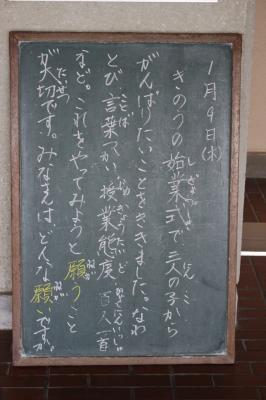 1月9日(木)
きのうの始業式で、三人の子から
がんばりたいことをききました。なわ
とび、言葉づかい、授業態度、百人一首
など。これをやってみようと願うこと
が大切です。みなさんは、どんな願いですか。